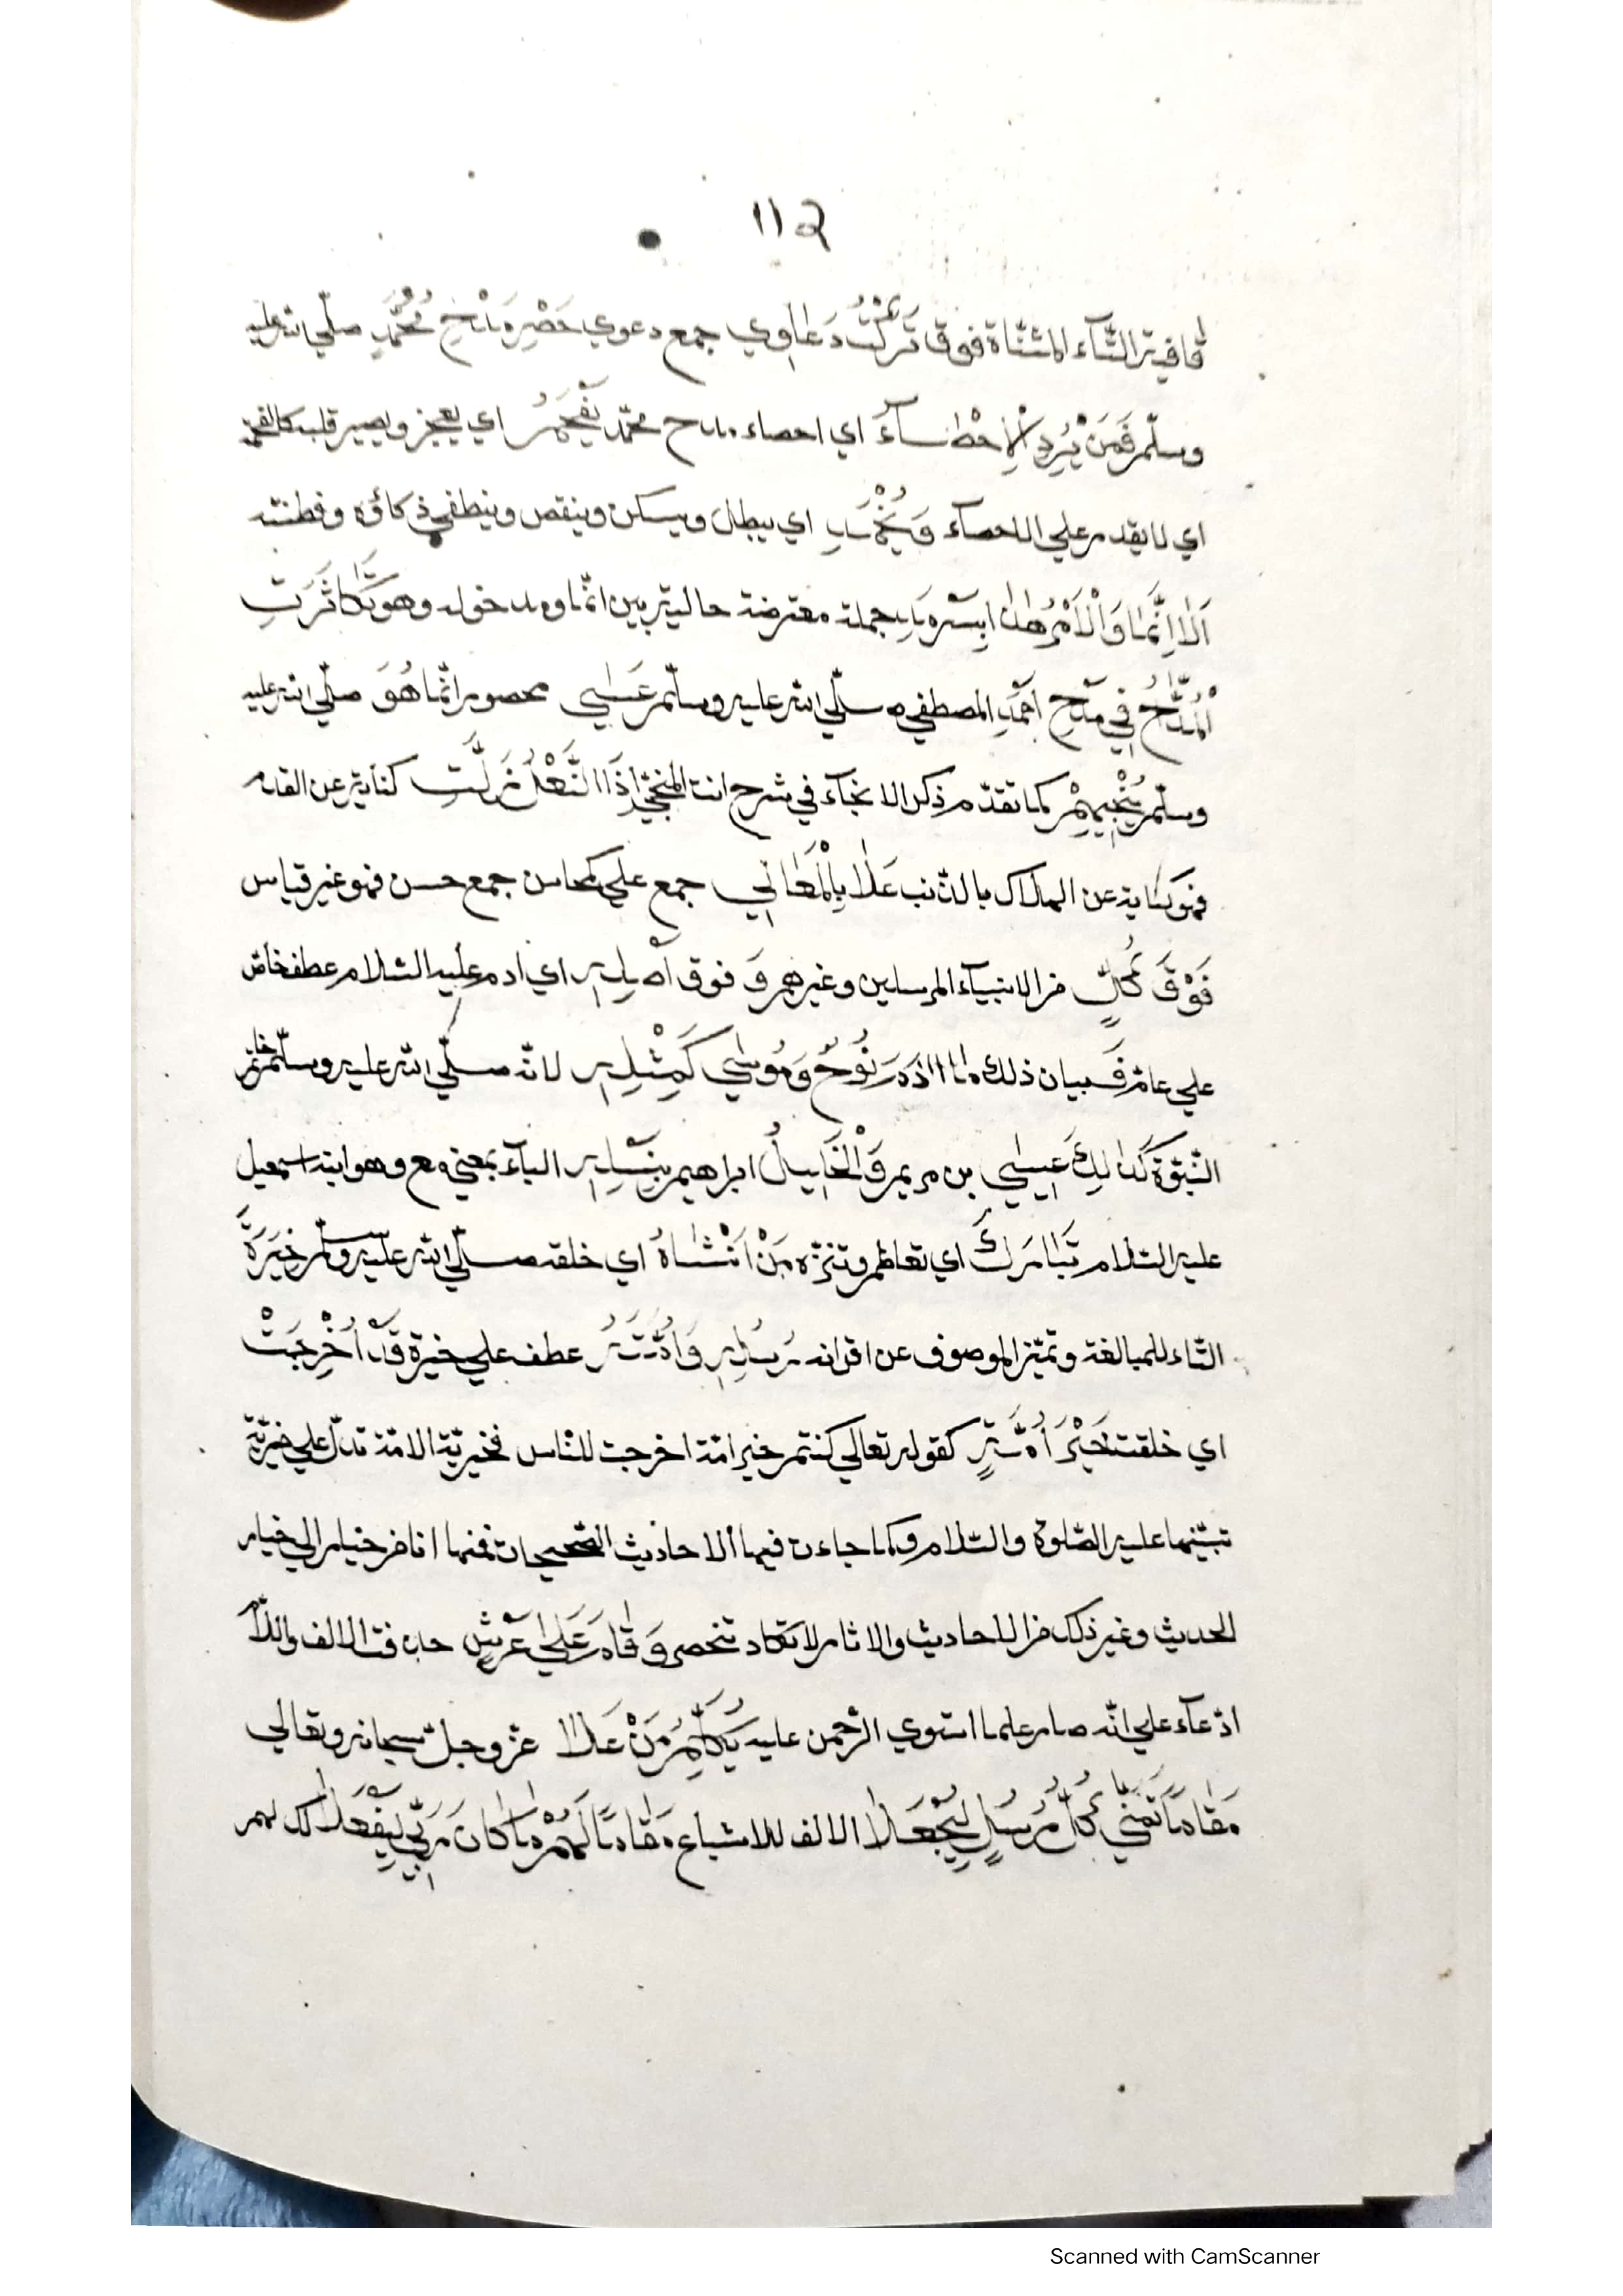 ١١٥
قافية التّآء المثنّاة فوق تَرَكْتُ دَعَاوِي جمع دعوي حَصْرِ مَدْحِ مُحَمَّدٍ صلّي الله عليه
وسلّم فَمَنْ يُرِدِ الْاِحْصَآءَ اي احصاء مدح محمّد يُفْحَمُ اي يعجز ويصير قلبه كالفحم
اي لا يقدر علي الاحصآء وَيُخْمَدِ اي يبطل ويسكن وينقص وينطفي ذكاؤه وفطنته
اَلَا اِنَّمَا وَالْاَمْرُ هٰذَا بِسَرْمَدِ جملة معترضة حالية بين انّما ومدخوله وهو تَكَاثَرَتِ
الْمُدَّاحُ فِي مَدْحِ اَحْمَدِ المصطفي صلّي الله عليه وسلّم عَسٰي محصور انّما هُوَ صلّي الله عليه
وسلّم يُنْجِيهِمْ كما تقدّم ذكر الانجآء في شرح انت المنجّي اِذَا النَّعْلُ زَلَّتِ كناية عن القدم
فهو كناية عن الهلاك بالذّنب عَلَا بِالْمَعَالِي جمع علي كمحاسن جمع حسن فهو غير قياس
فَوْقَ كُلٍّ من الانبيآء المرسلين وغيرهم وَ فوق اَصْلِهِ اي ادم عليه السّلام عطف خاصّ
علي عامّ فَبيان ذلك مَا اٰدَمُ نُوحٌ وَمُوسٰي كَمِثْلِهِ لانّه صلّي الله عليه وسلّم خاتم
النّبوّة كَذٰلِكَ عِيسٰي بن مريم وَالْخَلِيلُ ابراهيم بِنَسْلِهِ البآء بمعني مع وهو ابنه اسمعيل
عليه السّلام تَبَارَكَ اي تعاظم وتنزّه مَنْ اَنْشَاهُ اي خلقه صلّي الله عليه وسلّم خِيَرَةَ
التّاء للمبالغة وتميّز الموصوف عن اقرانه رُسْلِهِ وَاُمَّتَهُ عطف علي خيرة قَدْ اُخْرِجَتْ
اي خلقت خَيْرَ اُمَّةٍ كقوله تعالي كنتم خير امّة اخرجت للنّاس فخيريّة الامّة تدلّ علي خيريّة
نبيّها عليه الصّلوة والسّلام وكما جاءت فيها الاحاديث الصّحيحات فمنها انا من خيار الي خيار
الحديث وغير ذلك من الاحاديث والاثار لا تكاد تنحصر وَقَامَ عَلٰي عَرْشٍ حذفت الالف واللّام
ادّعآء علي انّه صار علما استوي الرّحمن عليه يُكَلِّمُ مَنْ عَلَا عزّ وجلّ سبحانه وتعالي
مَقَامًا تَمَنّٰي كُلُّ مُرْسَلٍ لِيُجْعَلَا الالف للاشباع مَقَامًا لَهُمْ مَا كَانَ رَبِّي لِيَفْعَلَا ذلك لهم
Scanned with CamScanner